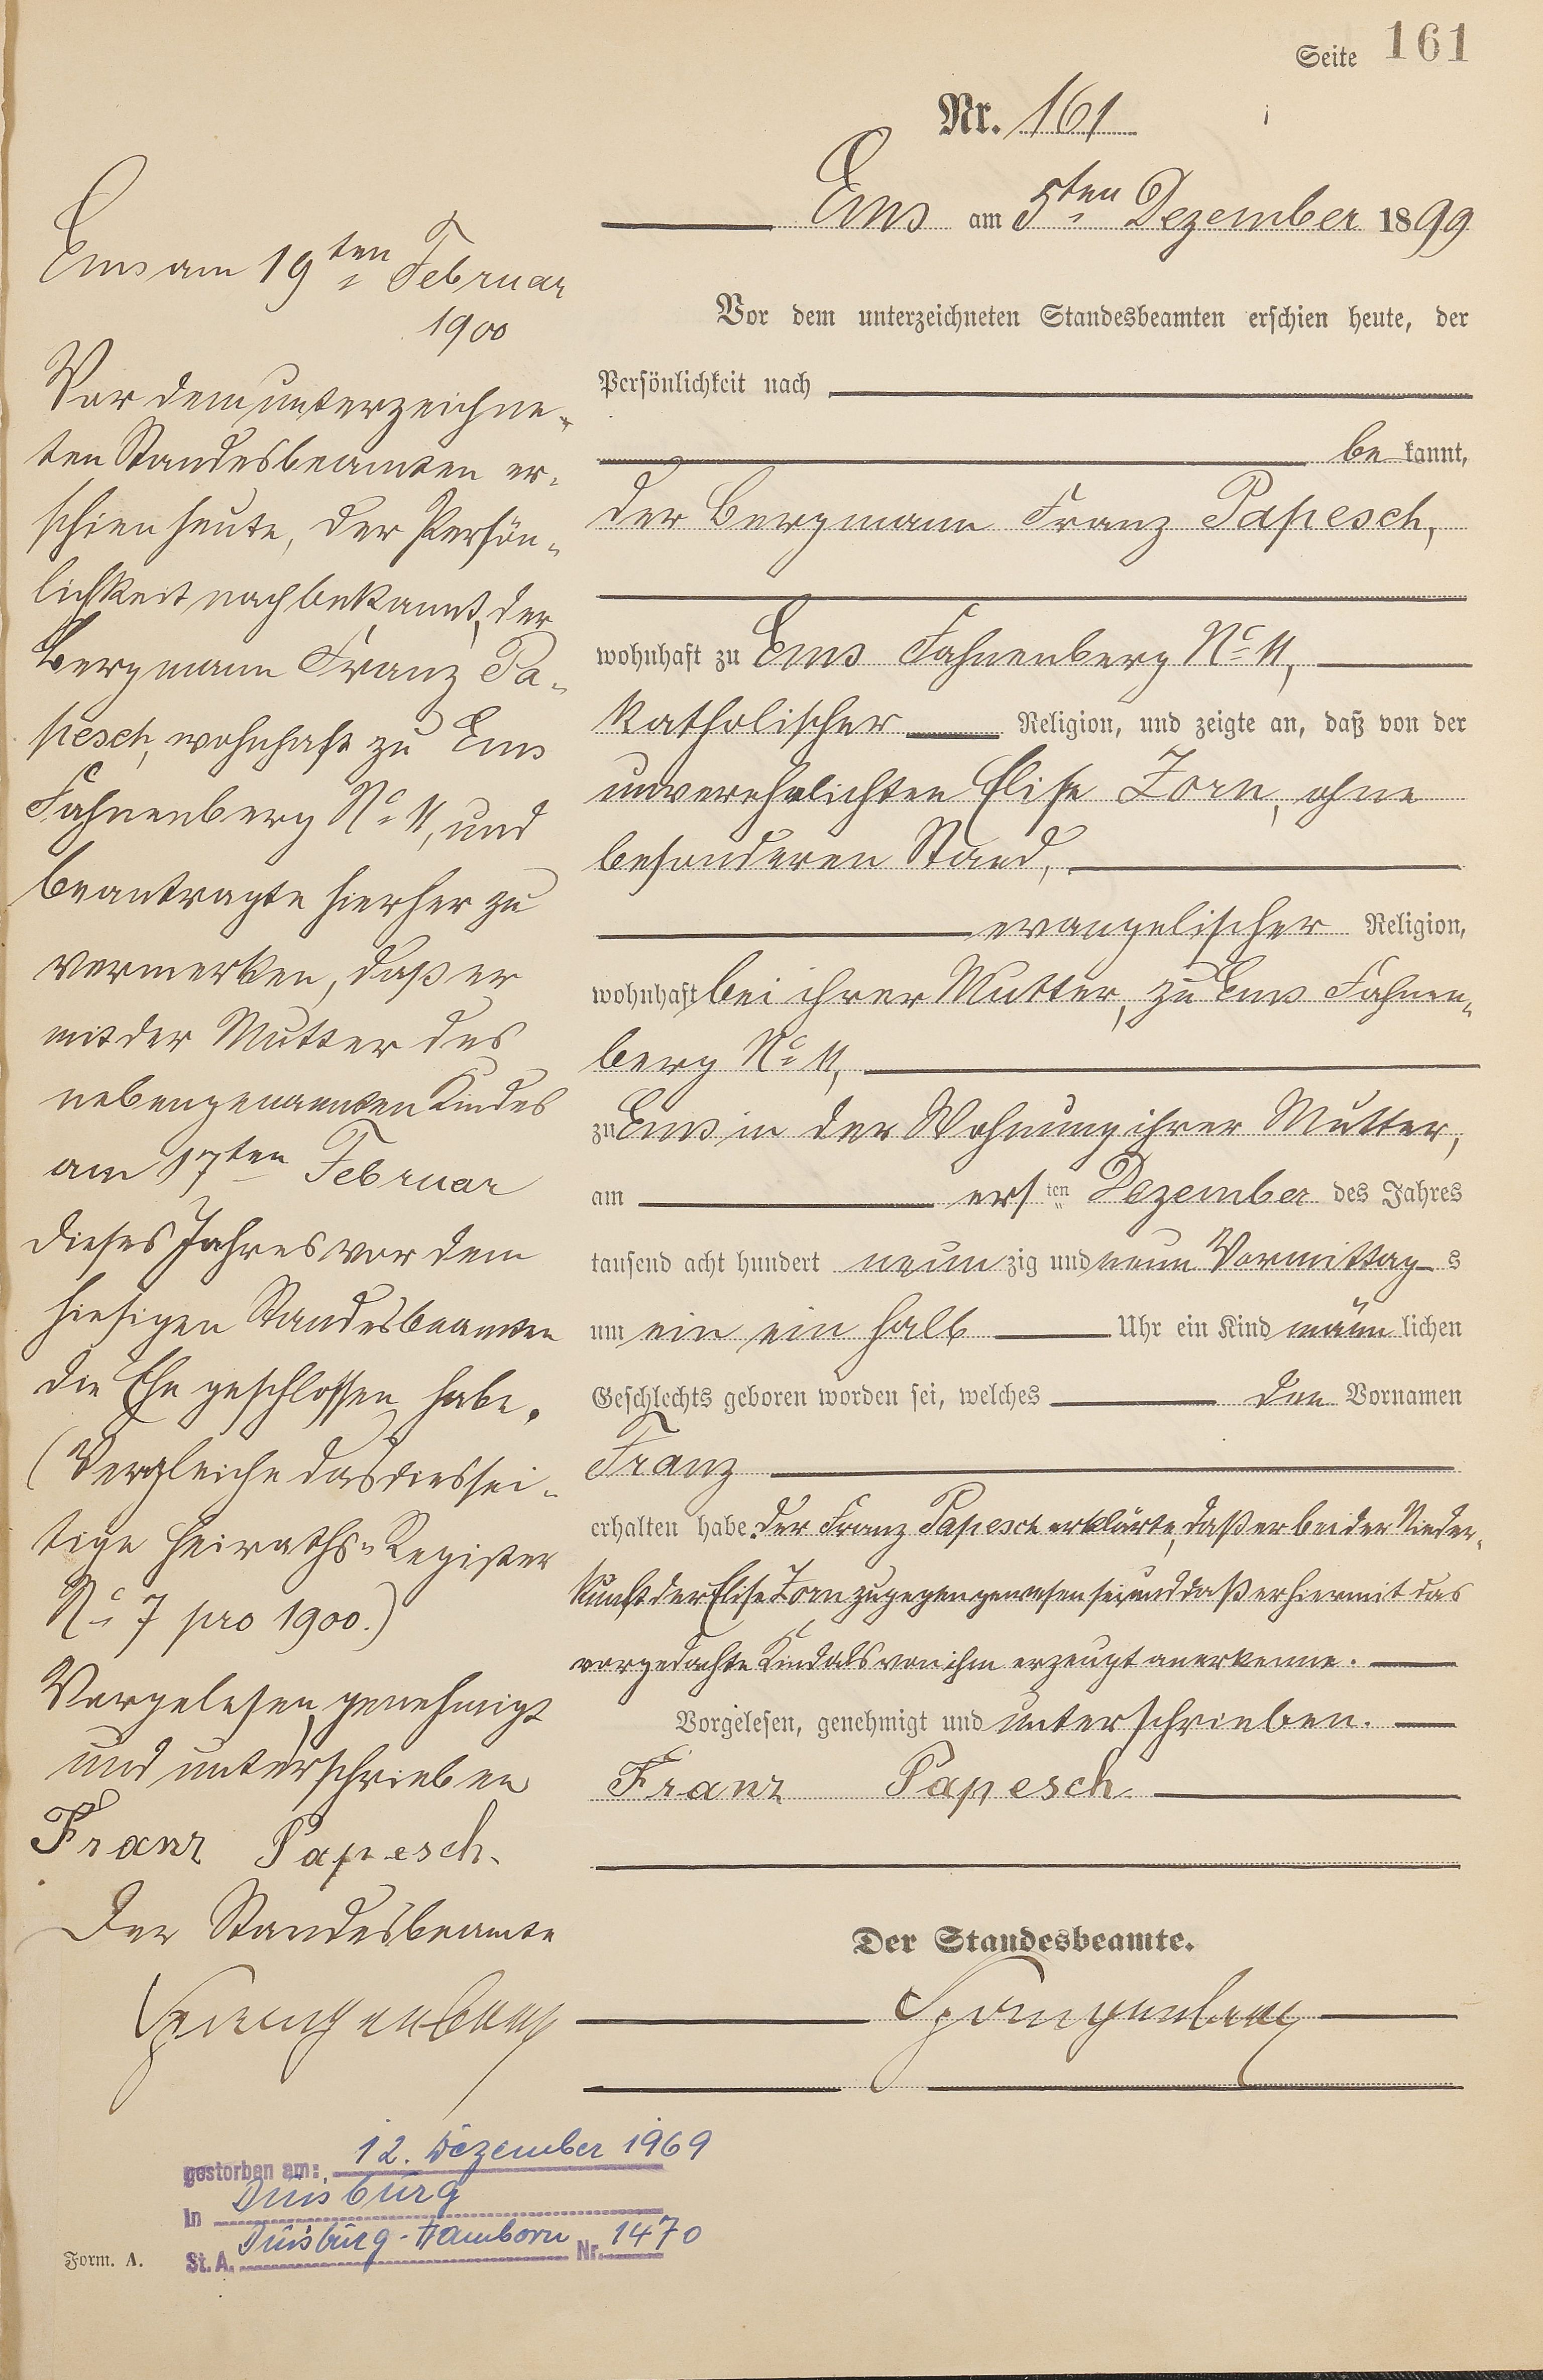 Seite 161
Nr. 161
Ems am 5ten Dezember 1899
Vor dem unterzeichneten Standesbeamten erschien heute, der
Persönlichkeit nach
be kannt,
der Bergmann Franz Papesch,
wohnhaft zu Ems Fahnenberg No 11,
katholischer Religion, und zeigte an, daß von der
unverehelichten Elise Zorn, ohne
besonderen Stand,
evangelischer Religion,
wohnhaft bei ihrer Mutter, zu Ems Fahnen-
berg No 11,
zu Ems in der Wohnung ihrer Mutter,
am ersten Dezember des Jahres
tausend acht hundert neunzig und neun Vormittags
um ein ein halb Uhr ein Kind männlichen
Geschlechts geboren worden sei, welches den Vornamen
Franz
erhalten habe. Der Franz Papesch erklärte, daß er bei der Nieder-
kunft der Elise Zorn zugegen gewesen sei, und daß er hiermit das
vorgedachte Kind als von ihm erzeugt anerkenne.
Vorgelesen, genehmigt und unterschrieben.
Franz Papesch
Der Standesbeamte.
Ems am 19ten Februar
1900
Vor dem unterzeichne-
ten Standesbeamten er-
schien heute, der Persön-
lichkeit nach bekannt, der
Bergmann Franz Pa-
pesch, wohnhaft zu Ems
Fahnenberg No 11, und
beantragte hierher zu
vermerken, daß er
mit der Mutter des
nebengenannten Kindes
am 17ten Februar
dieses Jahres vor dem
hiesigen Standesbeamten
die Ehe geschlossen habe.
(Vergleiche das diessei-
tige Heiraths-Register
No 7 pro 1900.)
Vorgelesen, genehmigt
und unterschrieben
Franz Papesch.
Der Standesbeamte
gestorben am: 12. Dezember 1969
in Duisburg
St. A. Duisburg-Hamborn Nr. 1470
Form. A.